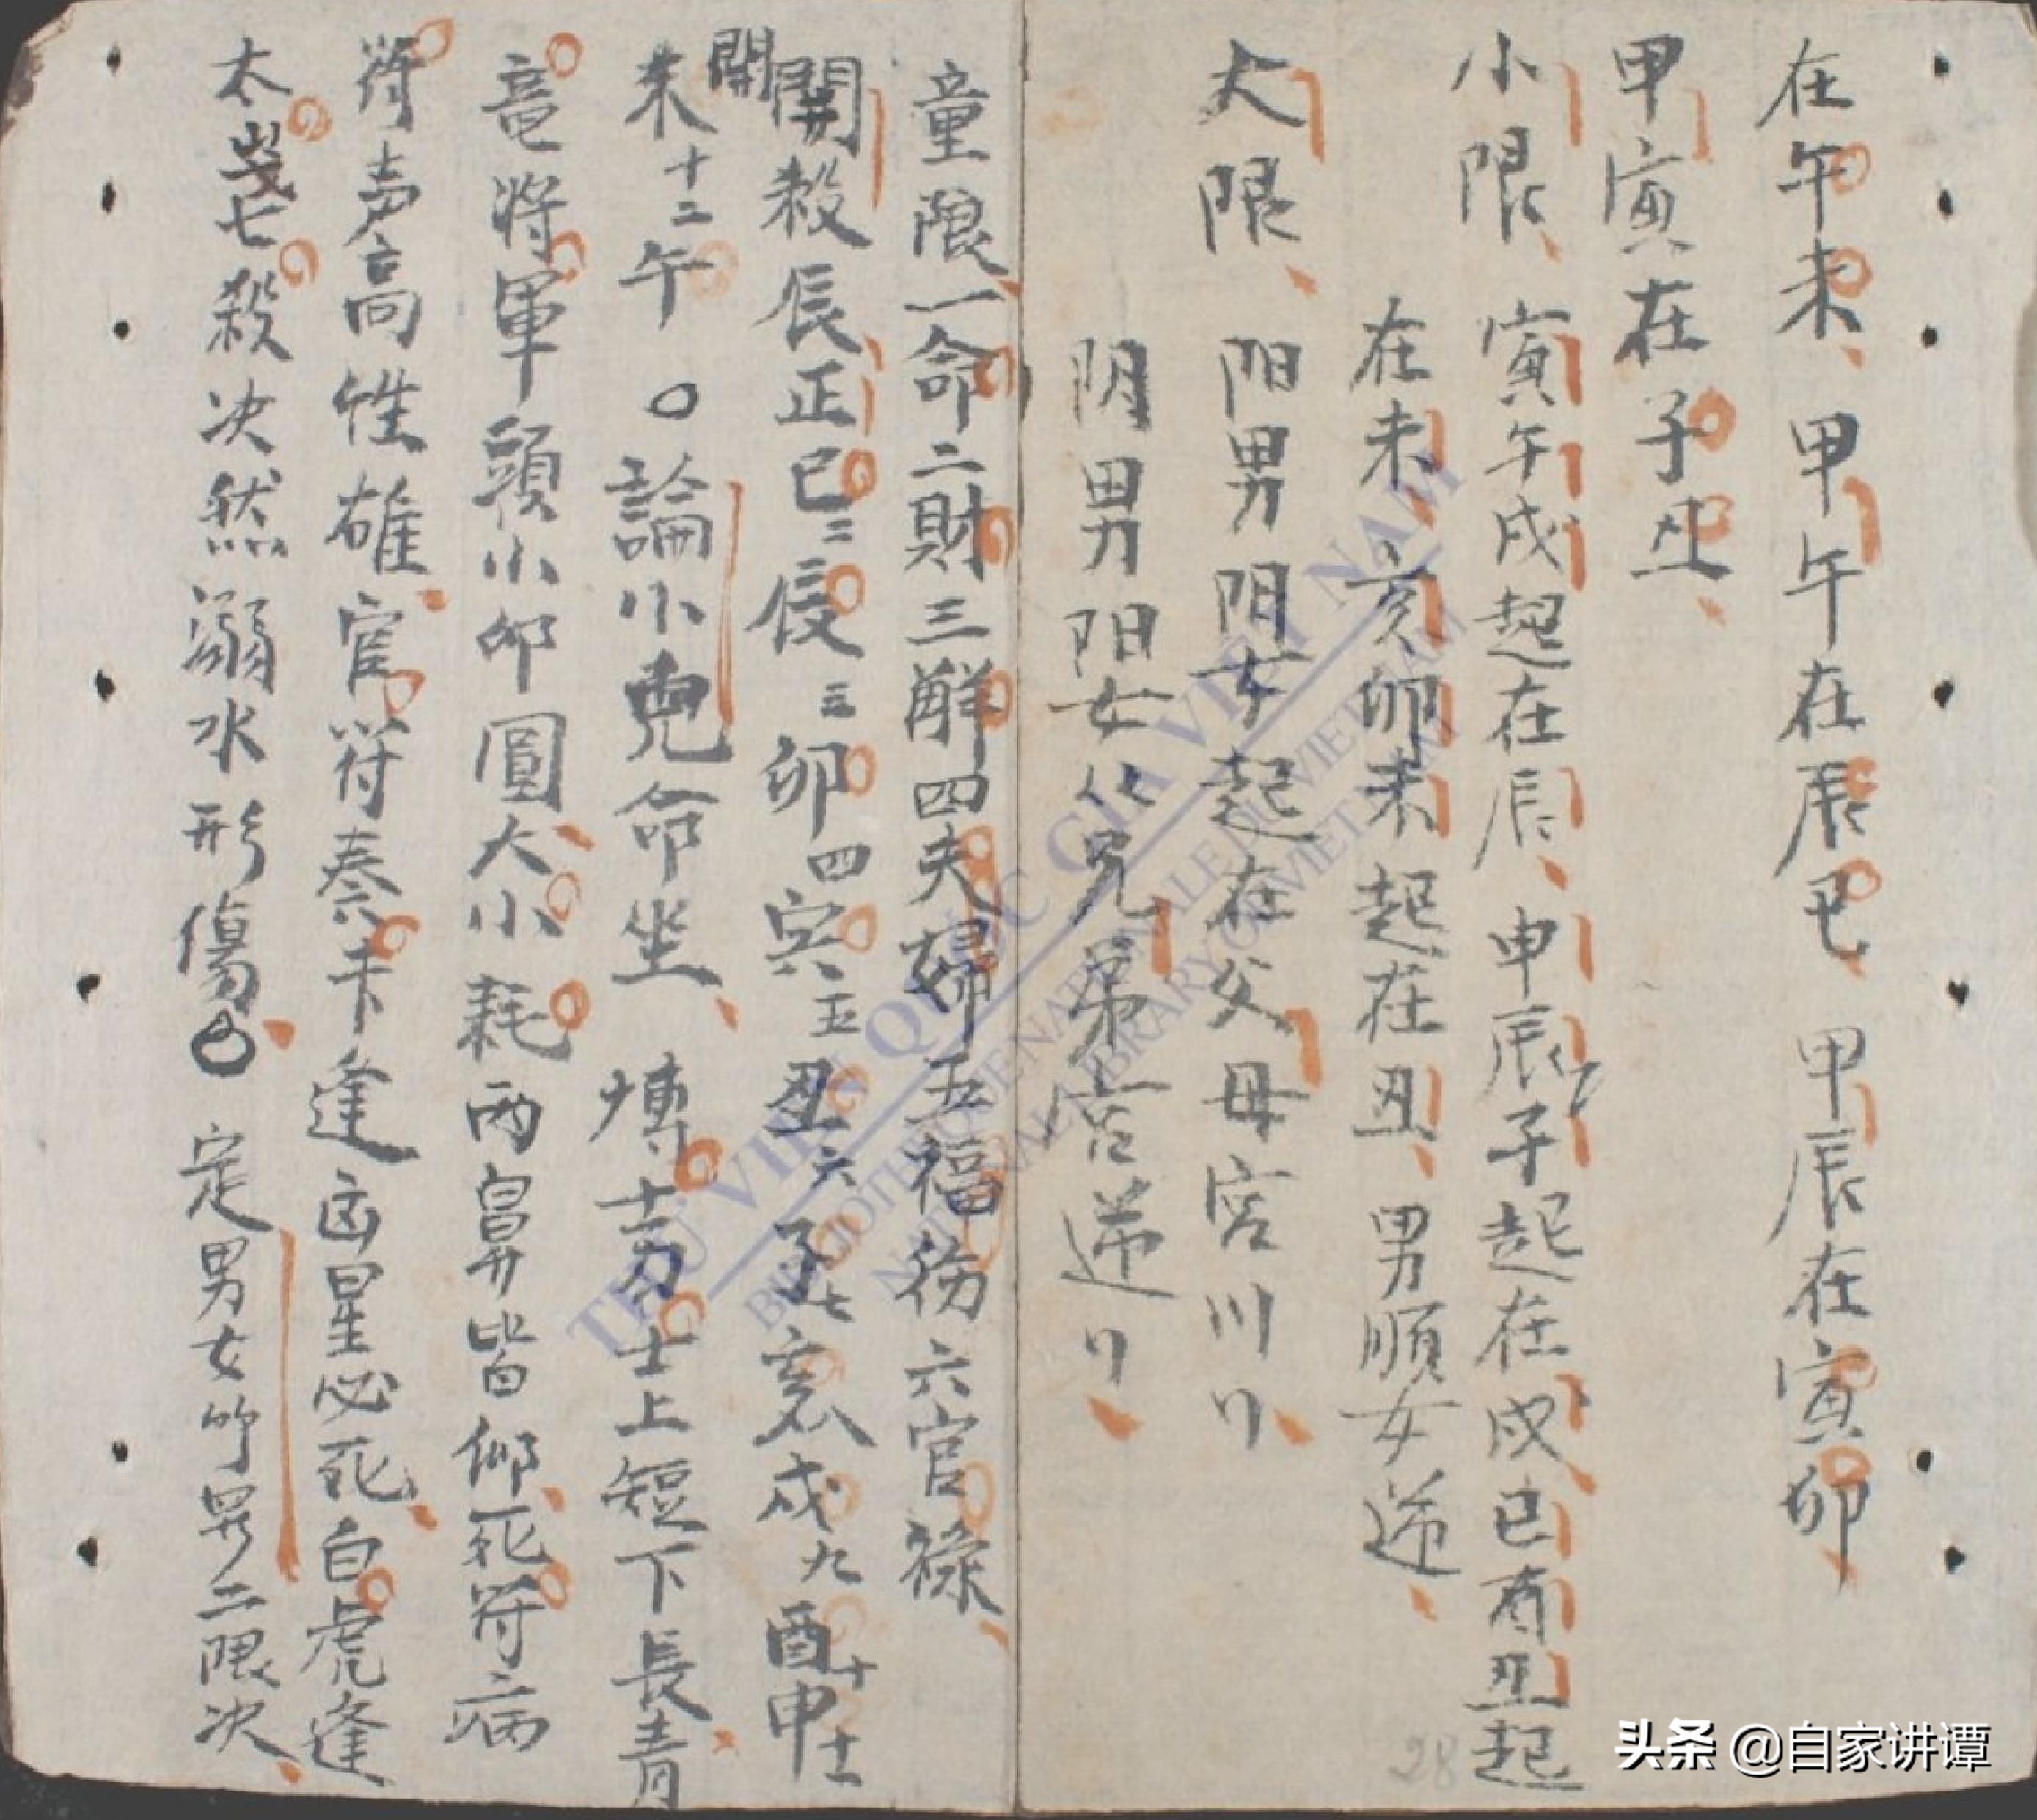 在午未、甲午在辰巳、甲辰在寅卯、
甲寅在子丑、
小限、寅午戌起在辰、申辰子起在戌、巳酉丑起
在未、亥卯未起在丑、男順女逆、
大限、阳男阴女起在父母宮
阴男阳女 兄弟宮逆
童限、一命二財三解四夫婦五福 六官禄、
開
開殺辰正巳二辰三卯四寅五丑六子七亥八戌九酉十申十一
未十二午○論小兒命坐、博士力士上短下長青
竜將軍頭小卵圓、大小耗两鼻皆仰、死符病
符声高性雄、官符奏 逢凶星必死、白虎逢
太歲七殺决然溺水形傷、○定男女 二限次、
THƯ VIỆN QUỐC GIA VIỆT NAM
BIBLIOTHEQUE NATIONALE DU VIETNAM
NATIONAL LIBRARY OF VIETNAM
28
头条 @自家讲谭